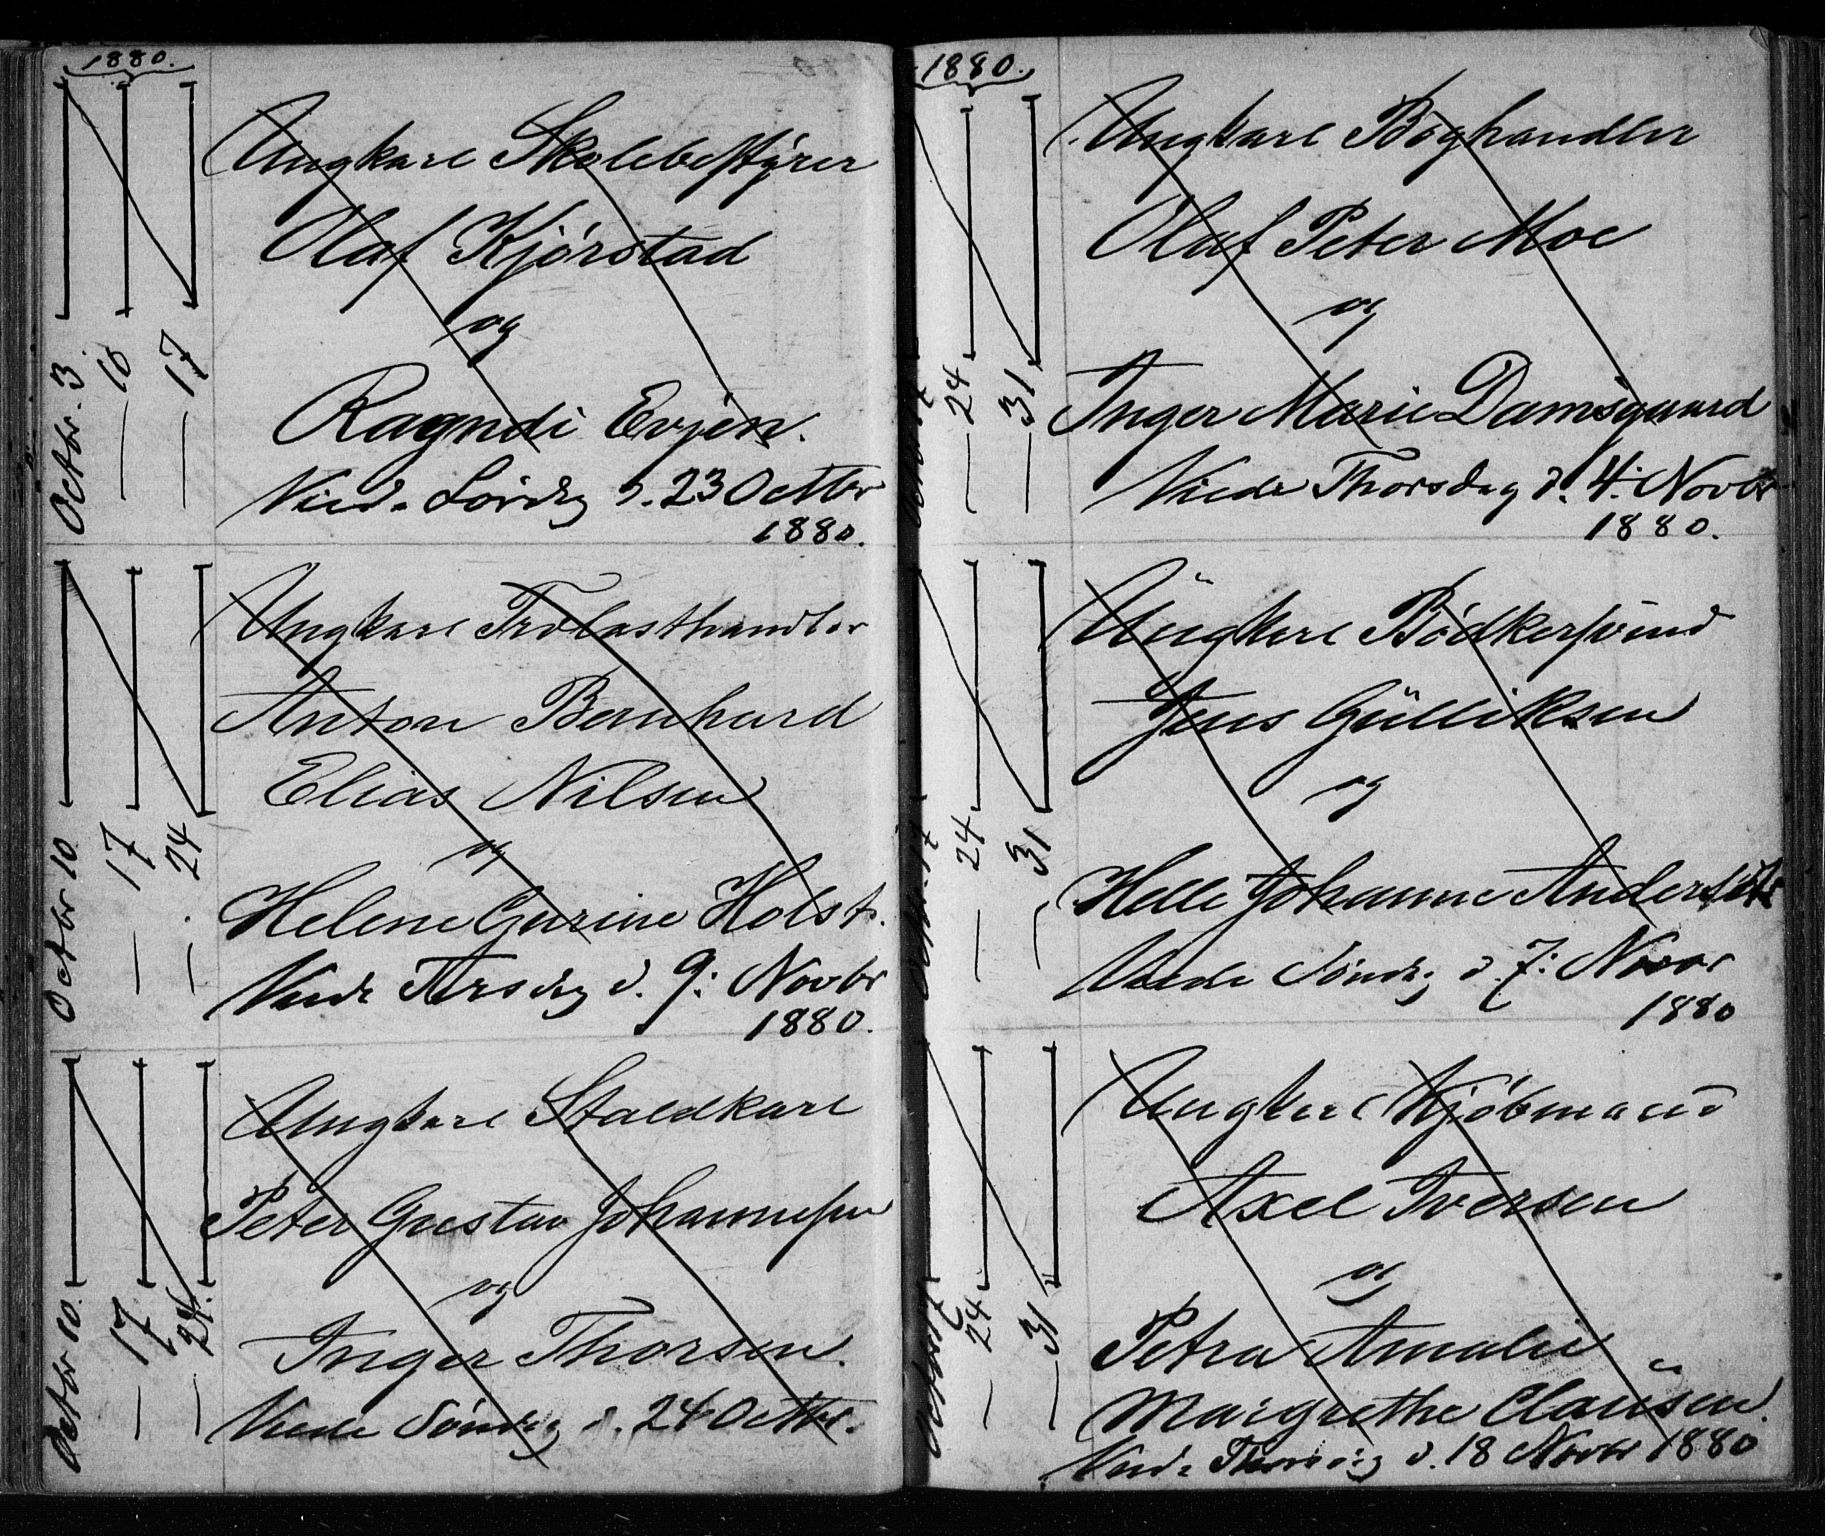 1880.
Octbr. 3. — 10 — 17
Ungkarl Skolebestyrer
Olaf Kjørstad
og
Ragndi Evjen.
Viede Lørdag d. 23 Octbr
1880.
Octbr 10 — 17 — 24
Ungkarl Trælasthandler
Anton Bernhard
Elias Nilsen
og
Helene Gurine Holst.
Viede Tirsdag d. 9: Novbr
1880.
Octbr 10. — 17 — 24.
Ungkarl Staldkarl
Peter Gustav Johannessen
og
Inger Thorsen.
Viede Søndag d. 24 Octbr.
1880.
24 — 31 —
Ungkarl Boghandler
Olaf Peter Moe
og
Inger Marie Damsgaard
Viede Thorsdag d. 4. Novbr
1880.
Octbr. 17 24 — 31 —
Ungkarl Bødkersvend
Jens Gulliksen
og
Helle Johanne Andersdtr
Viede Søndag d. 7: Novbr
1880
24 — 31 —
Ungkarl Kjøbmand
Axel Iversen
og
Petra Amalie
Margrethe Clausen.
Viede Thorsdag d. 18 Novbr 1880